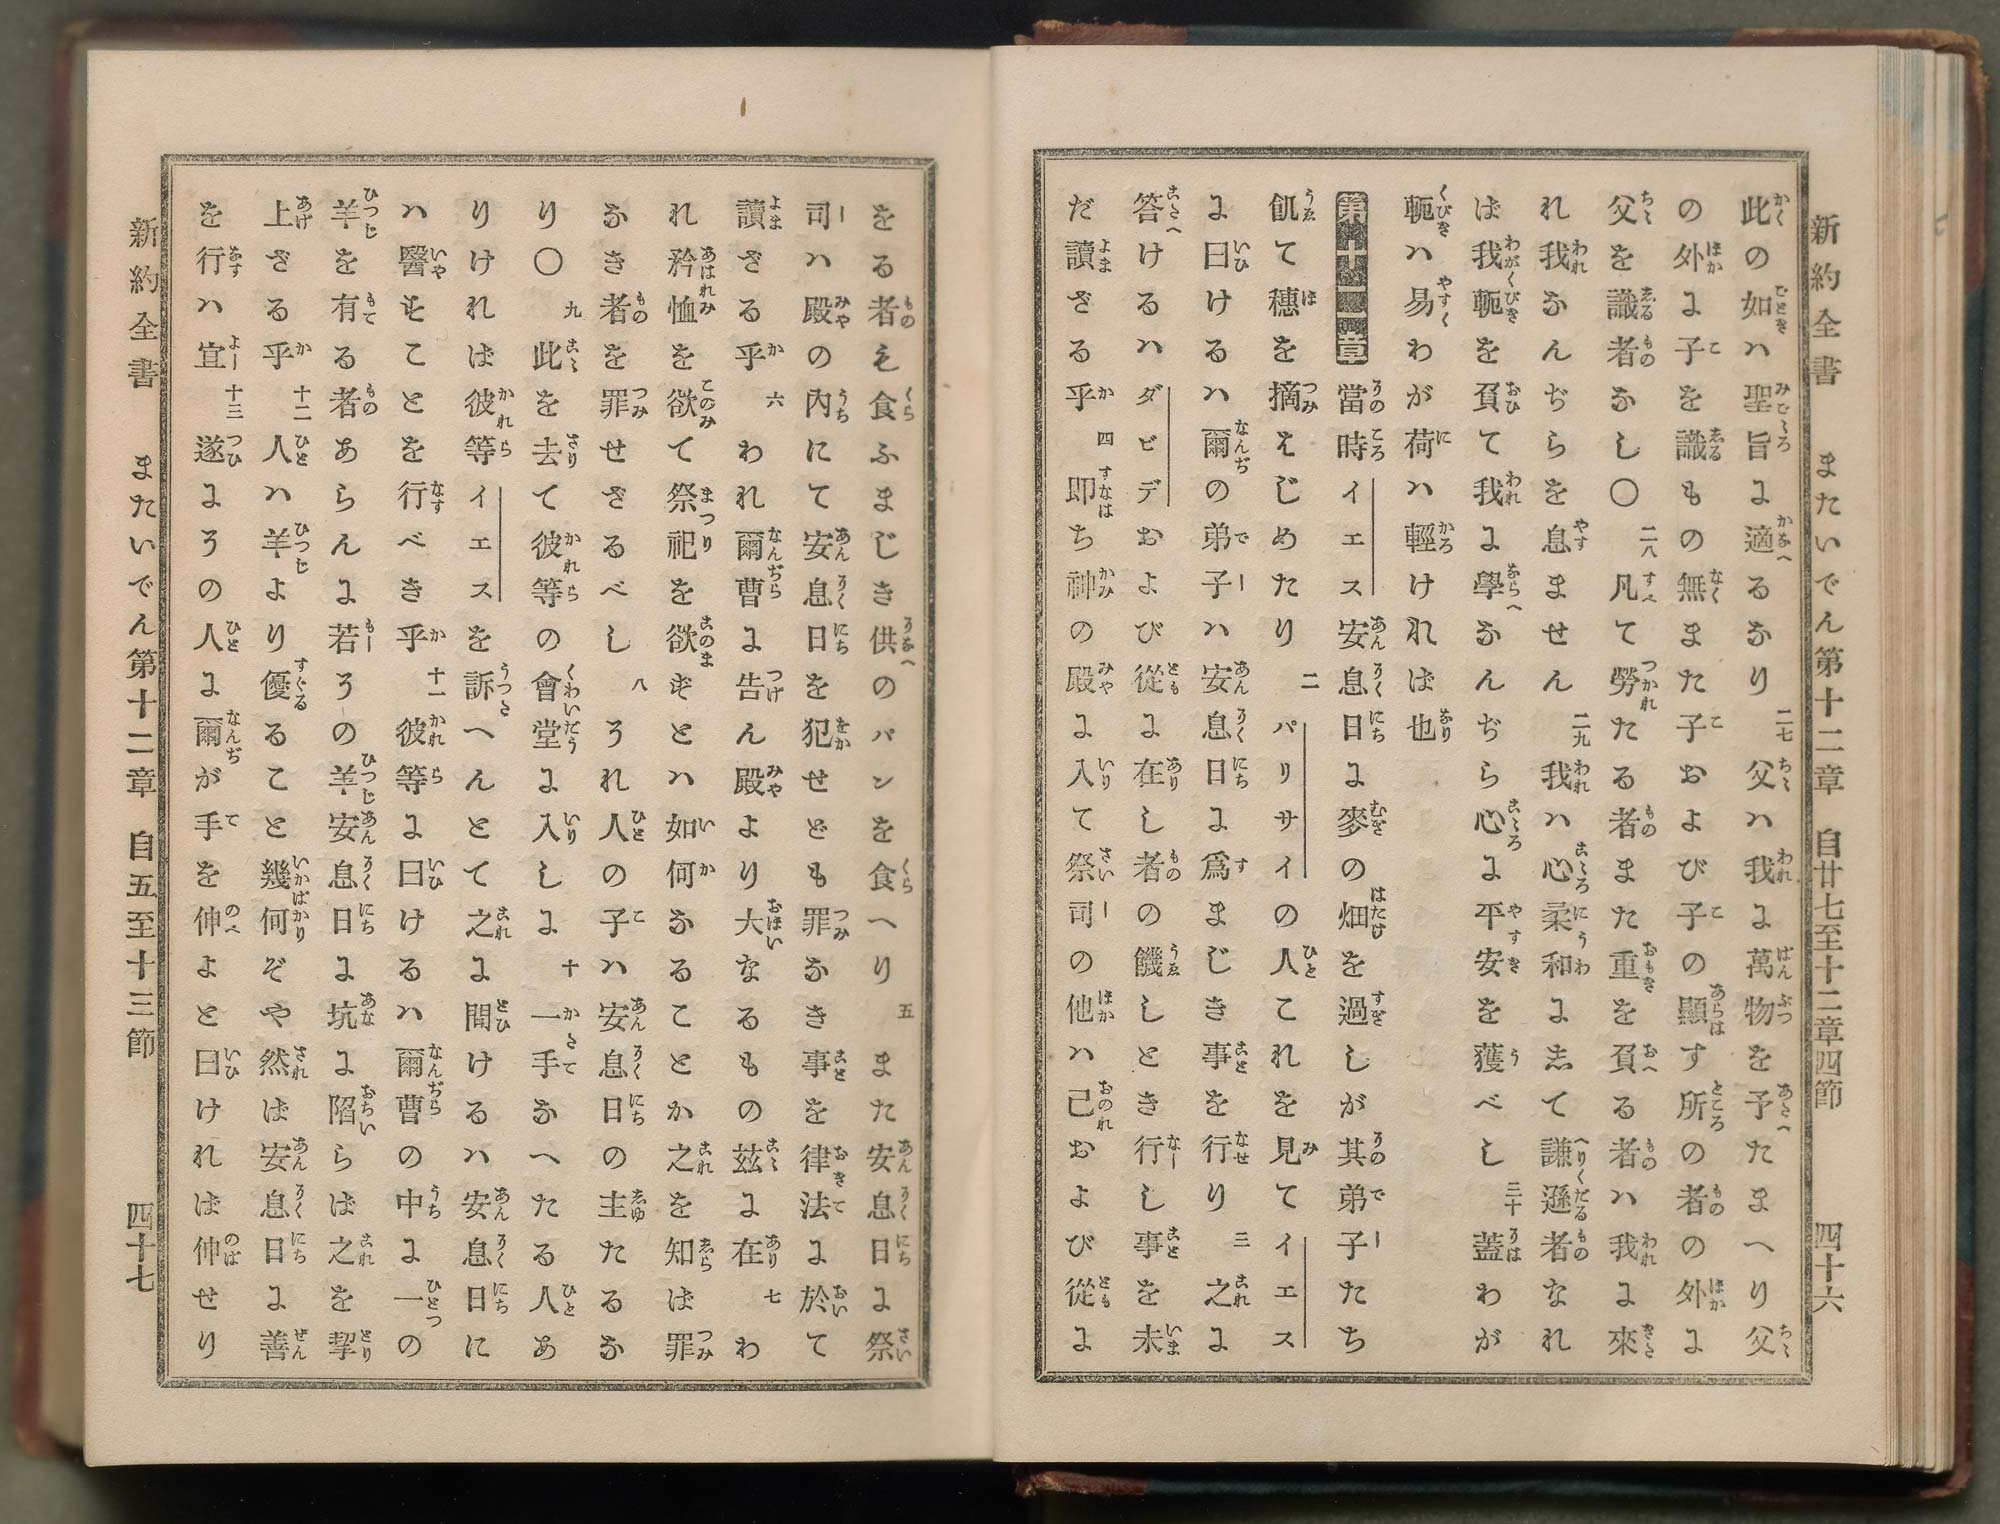 新約全書　またいでん第十二章　自廿七至十二章四節　四十六
此の如ハ聖旨に適るなり二七父ハ我に萬物を予たまへり父
の外に子を識もの無また子および子の顯す所の者の外に
父を識者なし〇二八凡て勞たる者また重を負る者ハ我に來
れ我なんぢらを息ません二九我ハ心柔和にして謙遜者なれ
ば我軛を負て我に學なんぢら心に平安を獲べし三十蓋わが
軛ハ易わが荷ハ輕ければ也
第十二章當時イエス安息日に麥の畑を過しが其弟子たち
飢て穗を摘はじめたり二パリサイの人これを見てイエス
に曰けるハ爾の弟子ハ安息日に爲まじき事を行り三之に
答けるハダビデおよび從に在し者の饑しとき行し事を未
だ讀ざる乎四即ち神の殿に入て祭司の他ハ己および從に
をる者も食ふまじき供のパンを食へり五また安息日に祭
司ハ殿の内にて安息日を犯せども罪なき事を律法に於て
讀ざる乎六われ爾曹に告ん殿より大なるもの玆に在七わ
れ矜恤を欲て祭祀を欲ずとハ如何なることか之を知ば罪
なき者を罪せざるべし八それ人の子ハ安息日の主たるな
り〇九此を去て彼等の會堂に入しに十一手なへたる人あ
りければ彼等イエスを訴へんとて之に問けるハ安息日に
ハ醫すことを行べき乎十一彼等に曰けるハ爾曹の中に一の
羊を有る者あらんに若その羊安息日に坑に陷らば之を挈
上ざる乎十二人ハ羊より優ること幾何ぞや然ば安息日に善
を行ハ宜十三遂にその人に爾が手を伸よと曰ければ伸せり
新約全書　またいでん第十二章　自五至十三節　四十七